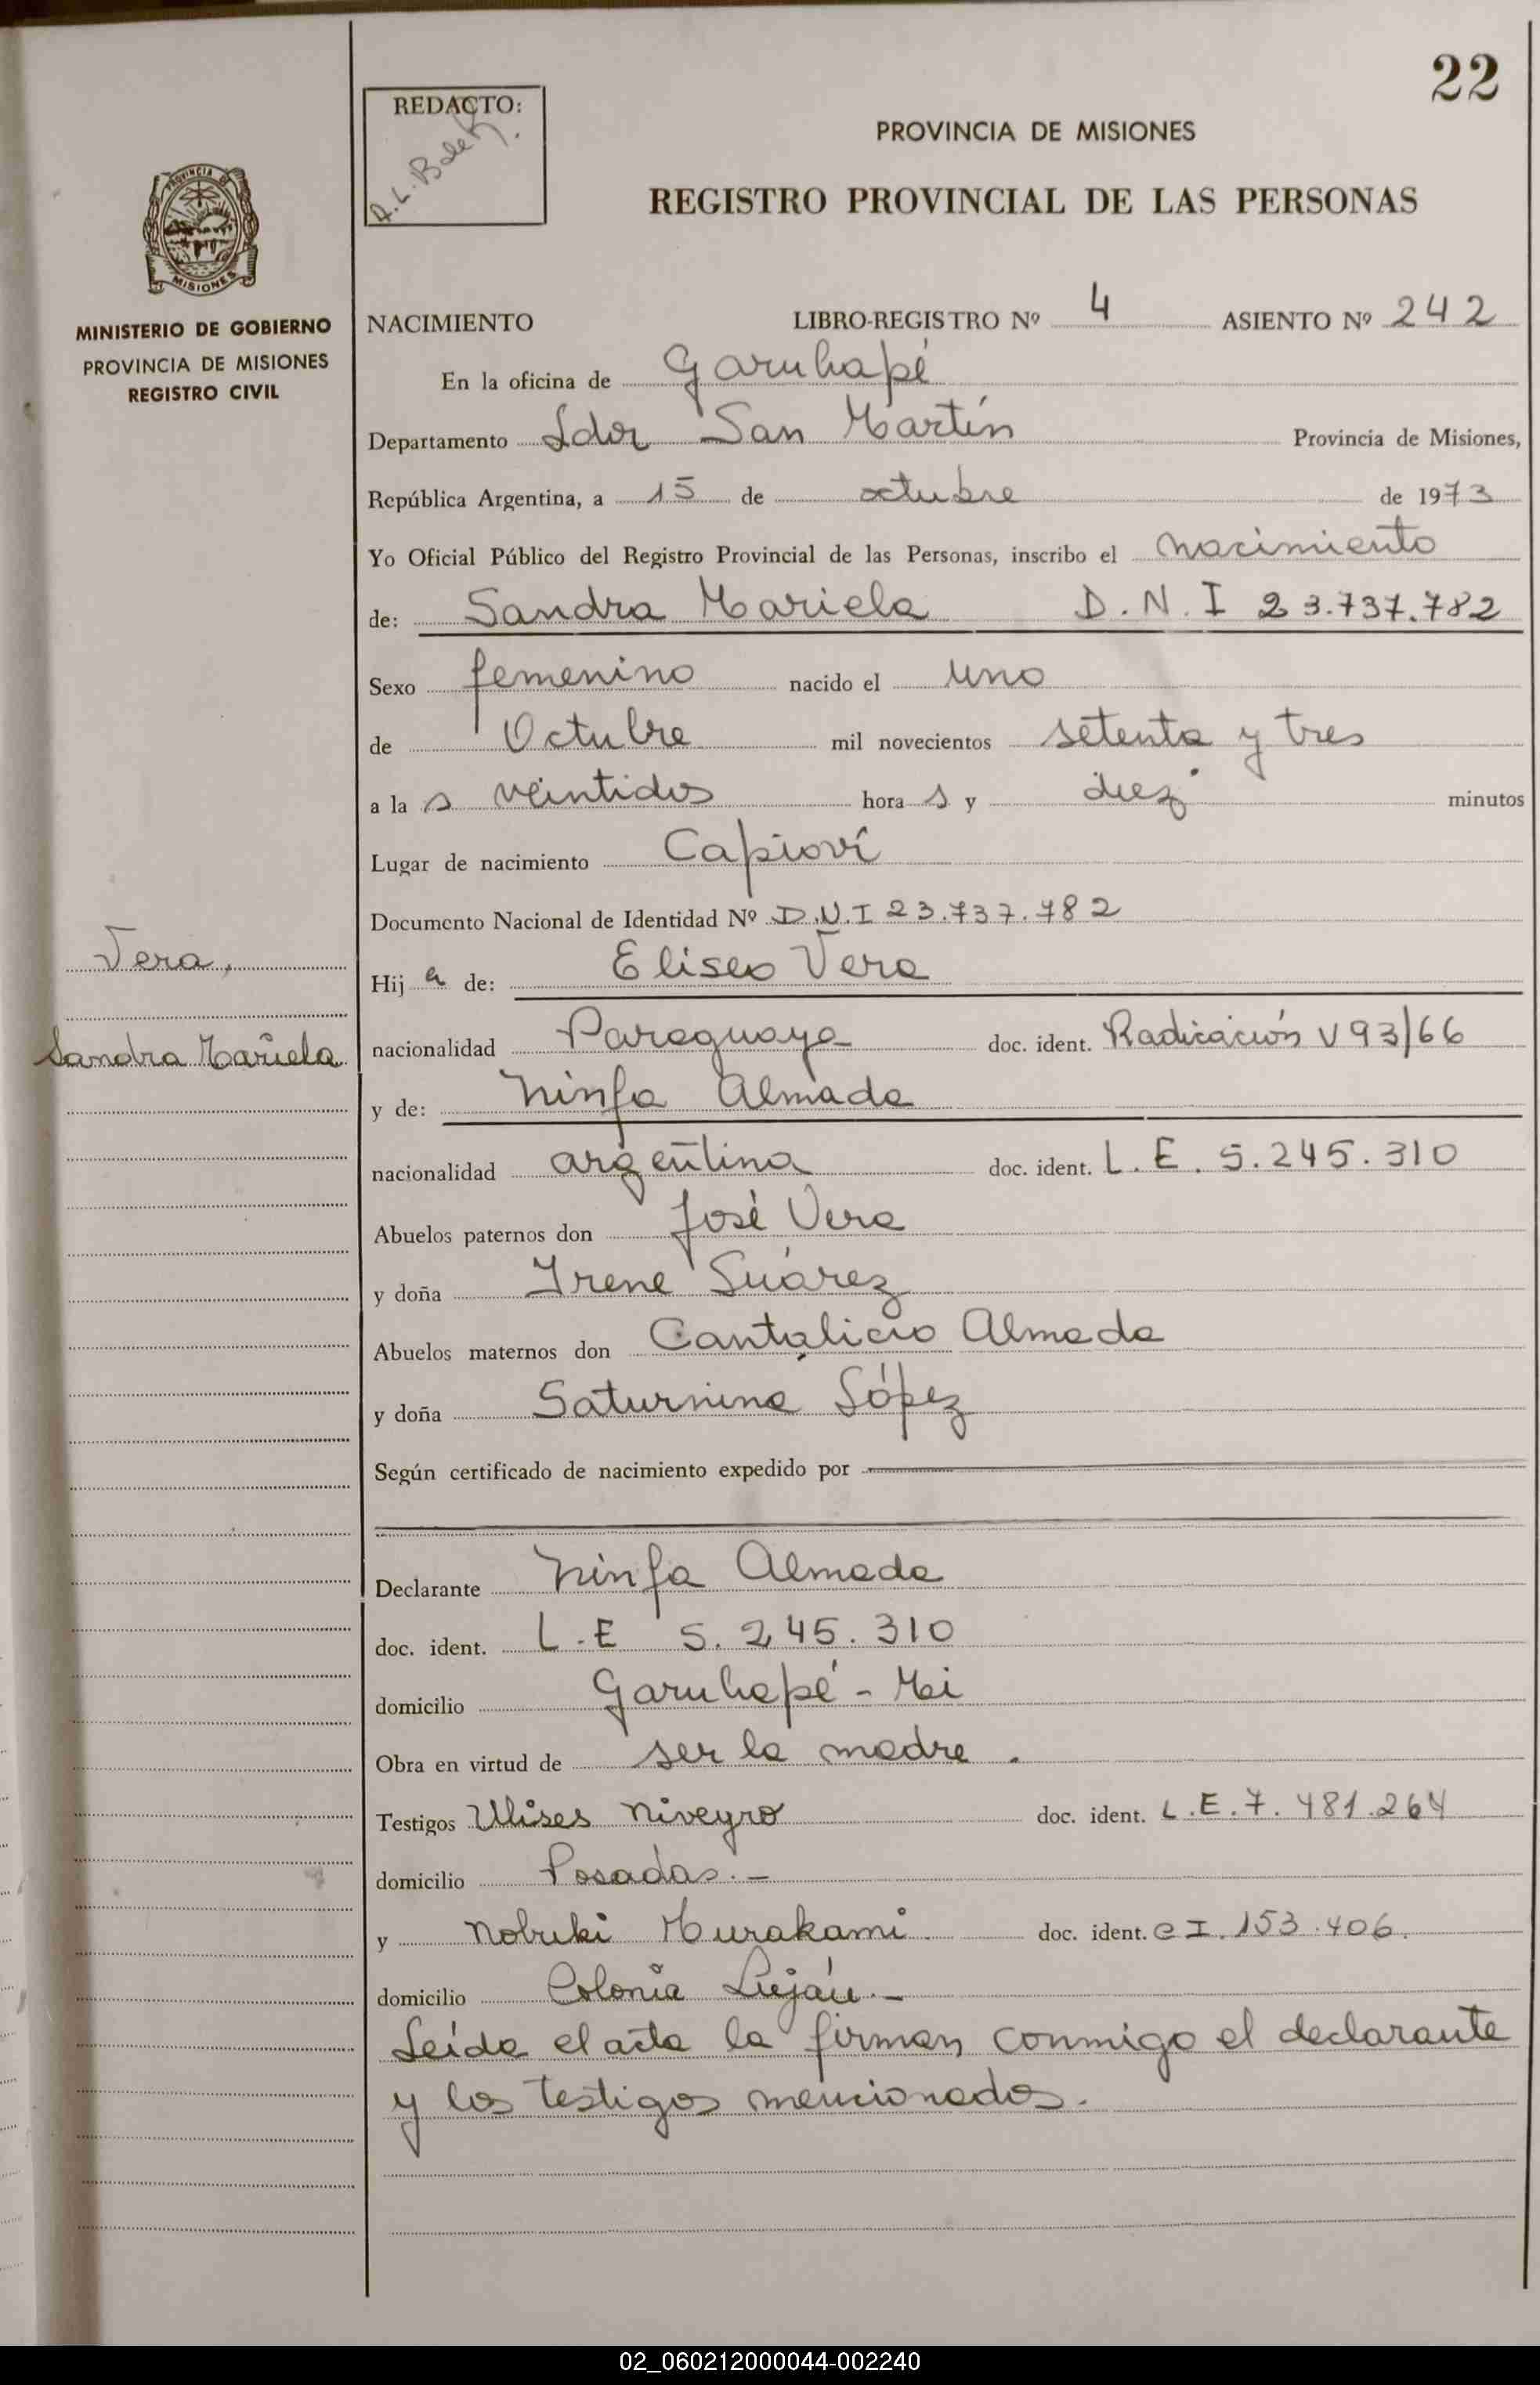 22
REDACTO:
A. L. Balek
PROVINCIA DE MISIONES
REGISTRO PROVINCIAL DE LAS PERSONAS
PROVINCIA DE
MISIONES
MINISTERIO DE GOBIERNO
PROVINCIA DE MISIONES
REGISTRO CIVIL
NACIMIENTO LIBRO-REGISTRO Nº 4 ASIENTO Nº 242
En la oficina de Garuhapé
Departamento Ldor San Martín Provincia de Misiones,
República Argentina, a 15 de octubre de 1973
Yo Oficial Público del Registro Provincial de las Personas, inscribo el nacimiento
de: Sandra Mariela D.N.I 23.737.782
Sexo femenino nacido el uno
de Octubre mil novecientos setenta y tres
a la s veintidos hora s y diez minutos
Lugar de nacimiento Capioví
Documento Nacional de Identidad Nº D.N.I 23.737.782
Vera,
Sandra Mariela
Hij a de: Eliseo Vera
nacionalidad Paraguaya doc. ident. Radicación V 93/66
y de: Ninfa Almada
nacionalidad argentina doc. ident. L.E. 5.245.310
Abuelos paternos don José Vera
y doña Irene Suárez
Abuelos maternos don Cantalicio Almada
y doña Saturnina López
Según certificado de nacimiento expedido por
Declarante Ninfa Almada
doc. ident. L.E 5.245.310
domicilio Garuhapé - Mi
Obra en virtud de ser la madre.
Testigos Ulises Niveyro doc. ident. L.E.7.481.264
domicilio Posadas.-
y Nobuki Murakami doc. ident. C I. 153.406.
domicilio Colonia Luján.-
Leída el acta la firman conmigo el declarante
y los testigos mencionados.
02_060212000044-002240